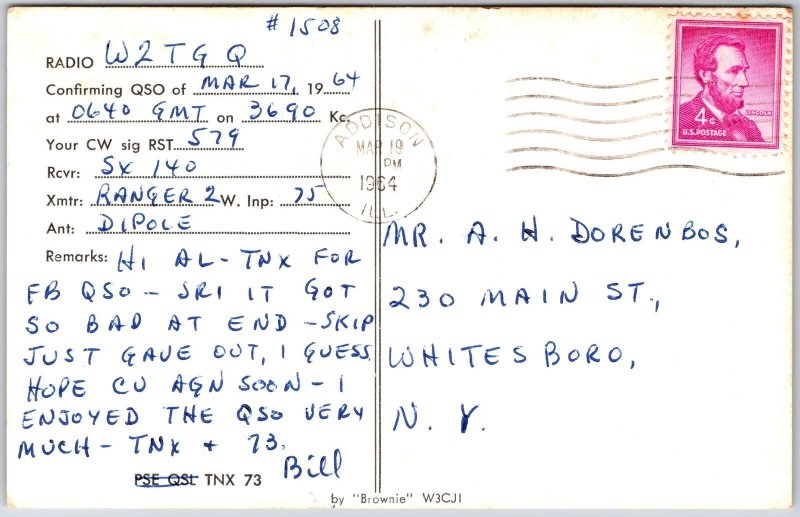 # 1508
RADIO W2TGQ
Confirming QSO of MAR 17, 1964
at 0640 GMT on 3690 Kc.
Your CW sig RST 579
Rcvr: SX 140
Xmtr: RANGER 2 W. Inp: 75
Ant: DIPOLE
Remarks: HI AL - TNX FOR
FB QSO - SRI IT GOT
SO BAD AT END - SKIP
JUST GAVE OUT, I GUESS
HOPE CU AGN SOON - I
ENJOYED THE QSO VERY
MUCH - TNX + 73.
Bill
PSE QSL TNX 73
by "Brownie" W3CJI
ADDISON
MAR 19
PM
1964
ILL.
4¢
LINCOLN
U.S. POSTAGE
MR. A. H. DORENBOS,
230 MAIN ST.,
WHITESBORO,
N. Y.